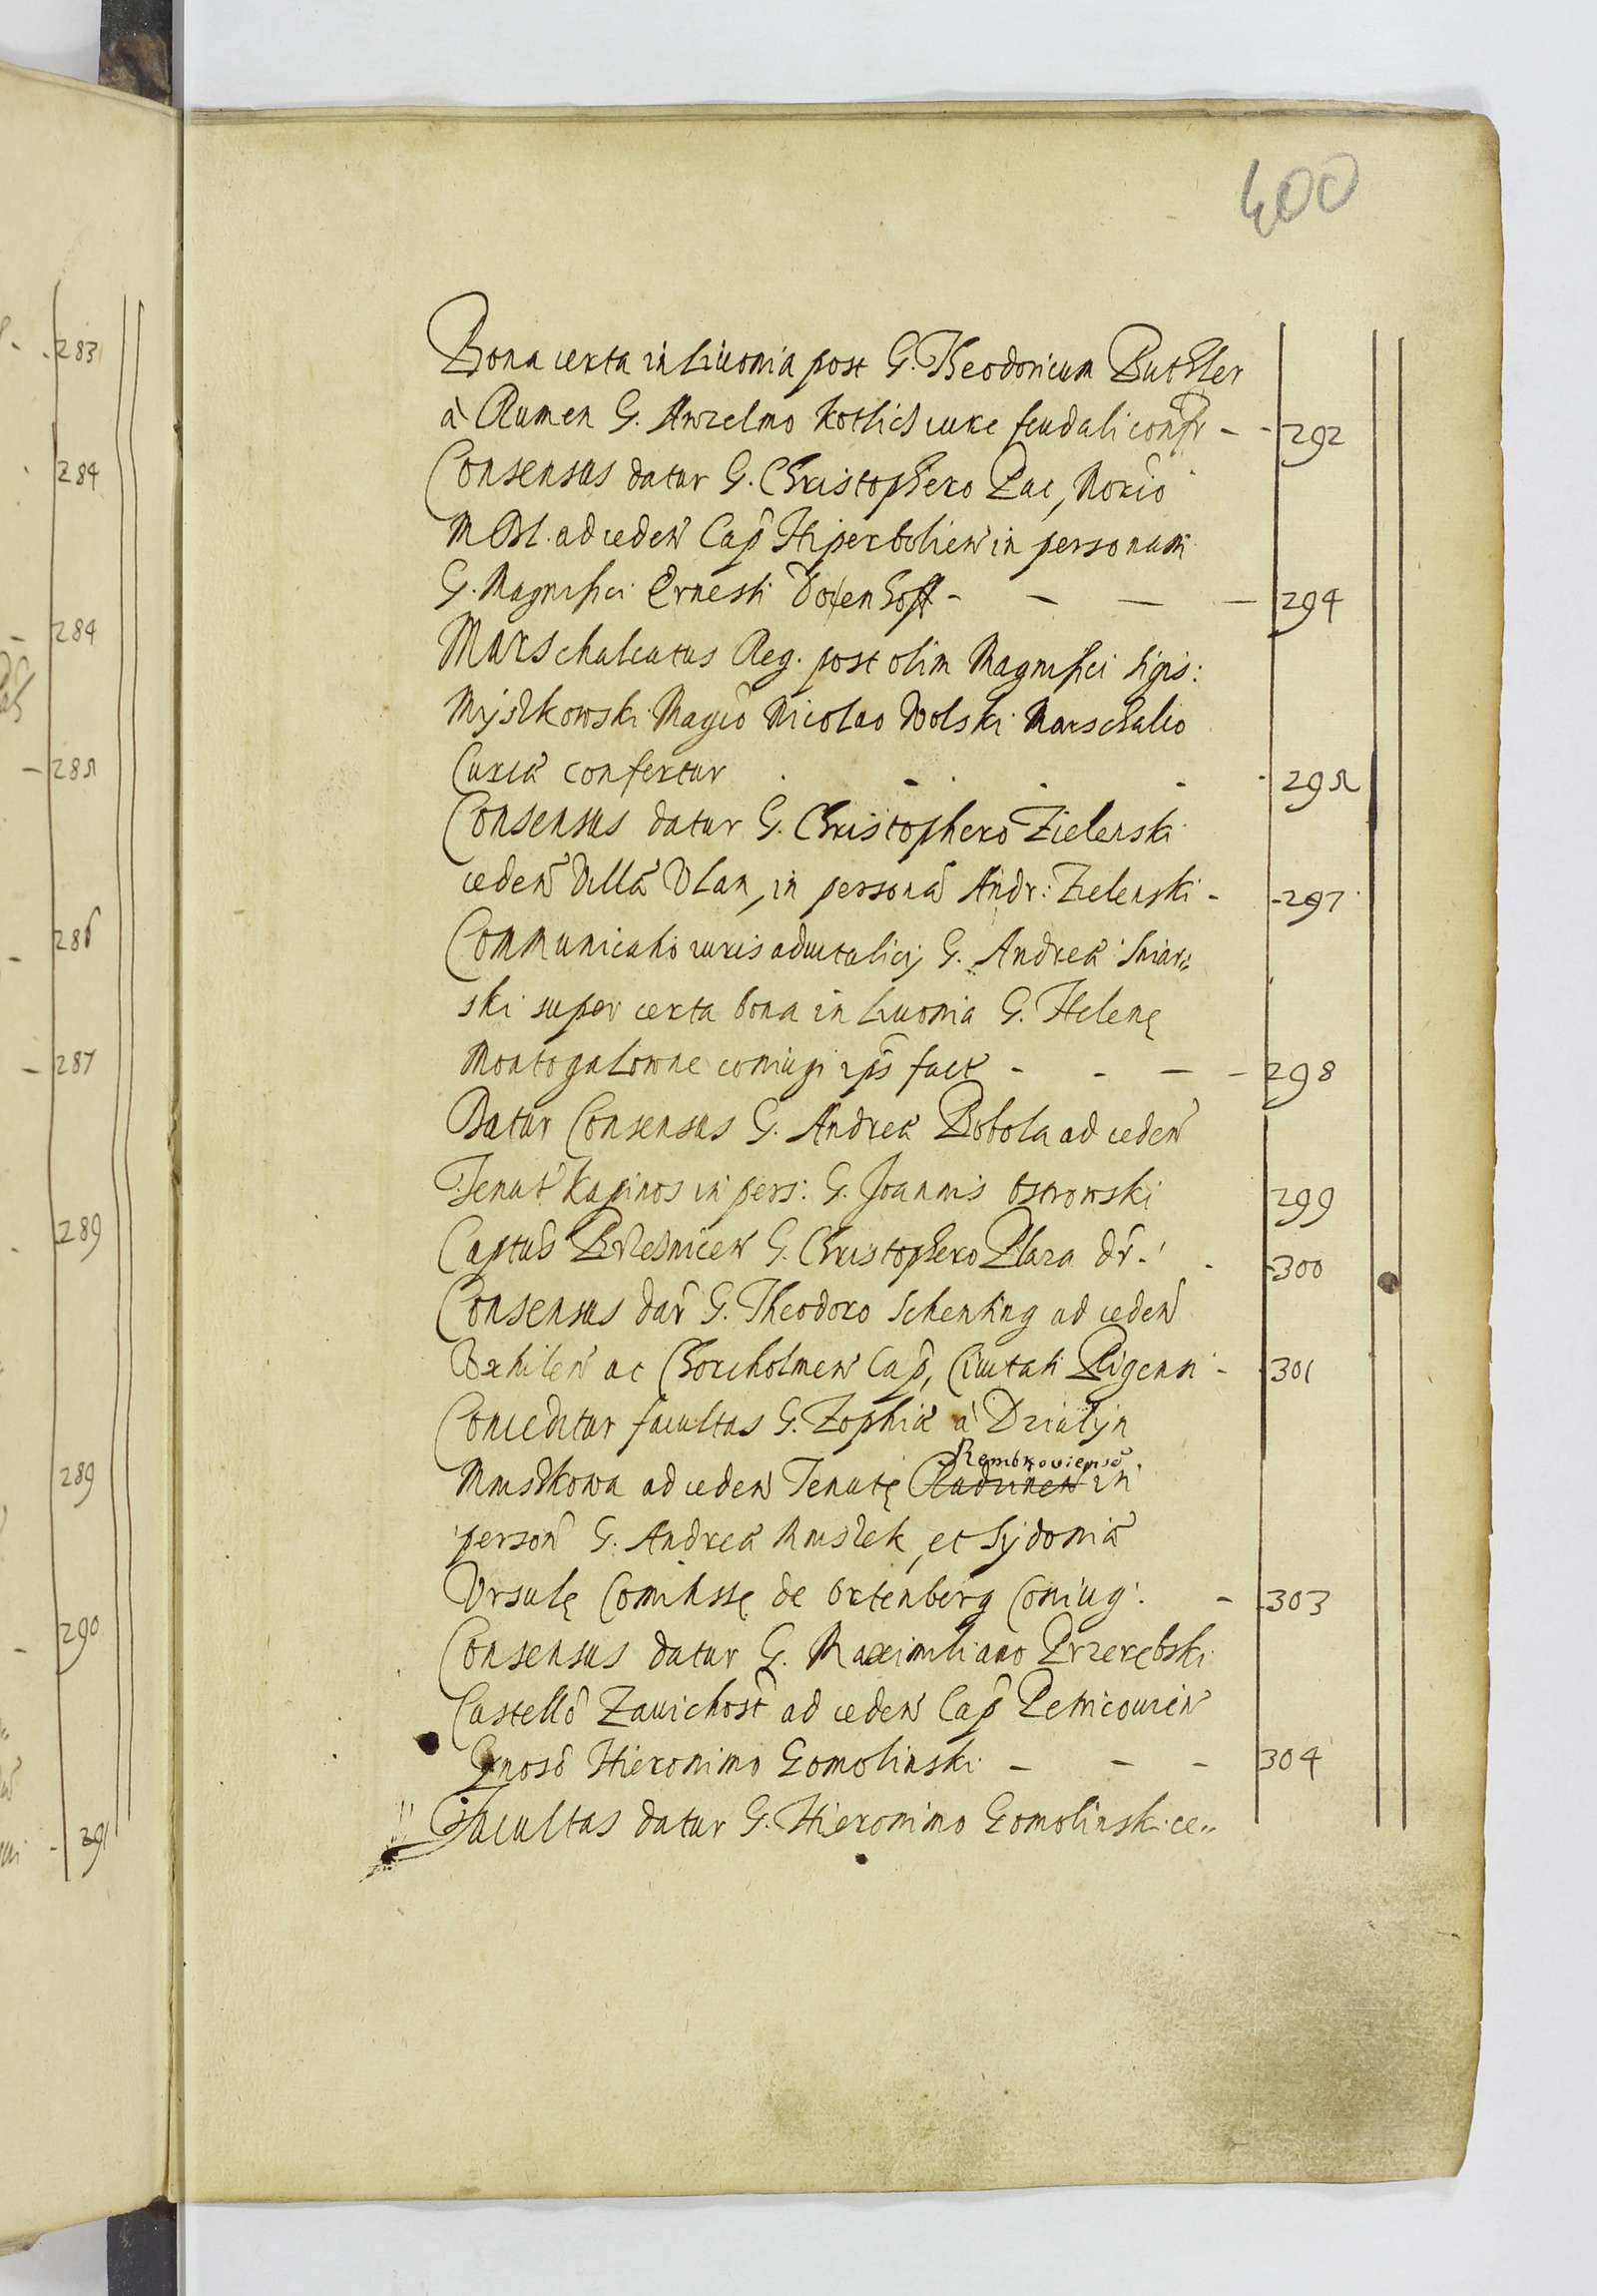 283
284
284
285
286
287
289
289
290
291
400
Bona certa in Liuonia post G. Theodoricum Buthler
à Rumen G. Anzelmo Kotlich iure feudali confr̃ - - 292
Consensus datur G. Christophero Pac, Nor̃io
M D L. ad ceden̄ Cap̃ Hiperbolien̄ in personam
G. Magnifici Ernesti Doenhoff - - - - 294
Marschalcatus Reg. post olim Magnifici Sigis:
Myszkowski Magc̃o Nicolao Wolski Marschalco
Curiæ confertur - - - - 295
Consensus datur G. Christophero Zielenski
ceden̄ Villã Vlan, in personã Andr: Zielenski - - 297
Communicatio iuris aduitalicij G. Andreæ
ski super certa bona in Liuonia G. Helenę
Montogalowne coniugi ips̃ fact̃ - - - - 298
Datur Consensus G. Andreæ Bobola ad ceden̄
Tenut̃ Kapinos in pers: G. Joannis Ostrowski 299
Captus̃ Brzesnicen̄ G. Christophero Plaza dr̃ - - 300
Consensus dar̃ G. Theodoro Schenking ad ceden̄
ac Cap̃, Ciuitati Rigensi - - 301
Conceditur facultas G. Zophiæ à Dzialyn
Rembkoviensẽ
Mniszkowa ad ceden̄ Tenutę Radzinen̄ in
person̄ G. Andreæ Mniszek, et Sydoniæ
Vrsulę Comitissę de Ortenberg Coniug: - - 303
Consensus datur G. Maximiliano Przerębski
Castellõ Zauichost̃ ad ceden̄ Cap̃ Petricouien̄
Gnosõ Hieronimo Gomolinski - - - 304
Facultas datur G. Hieronimo Gomolinski ce„